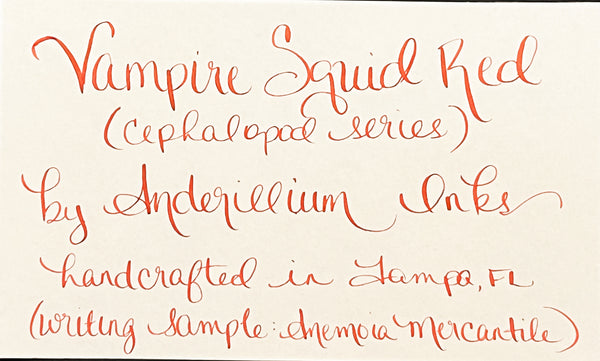 Vampire Squid Red
(Cephalopod series)
by Anderillium Inks
handcrafted in Tampa, FL
(writing sample: Anemoia Mercantile)